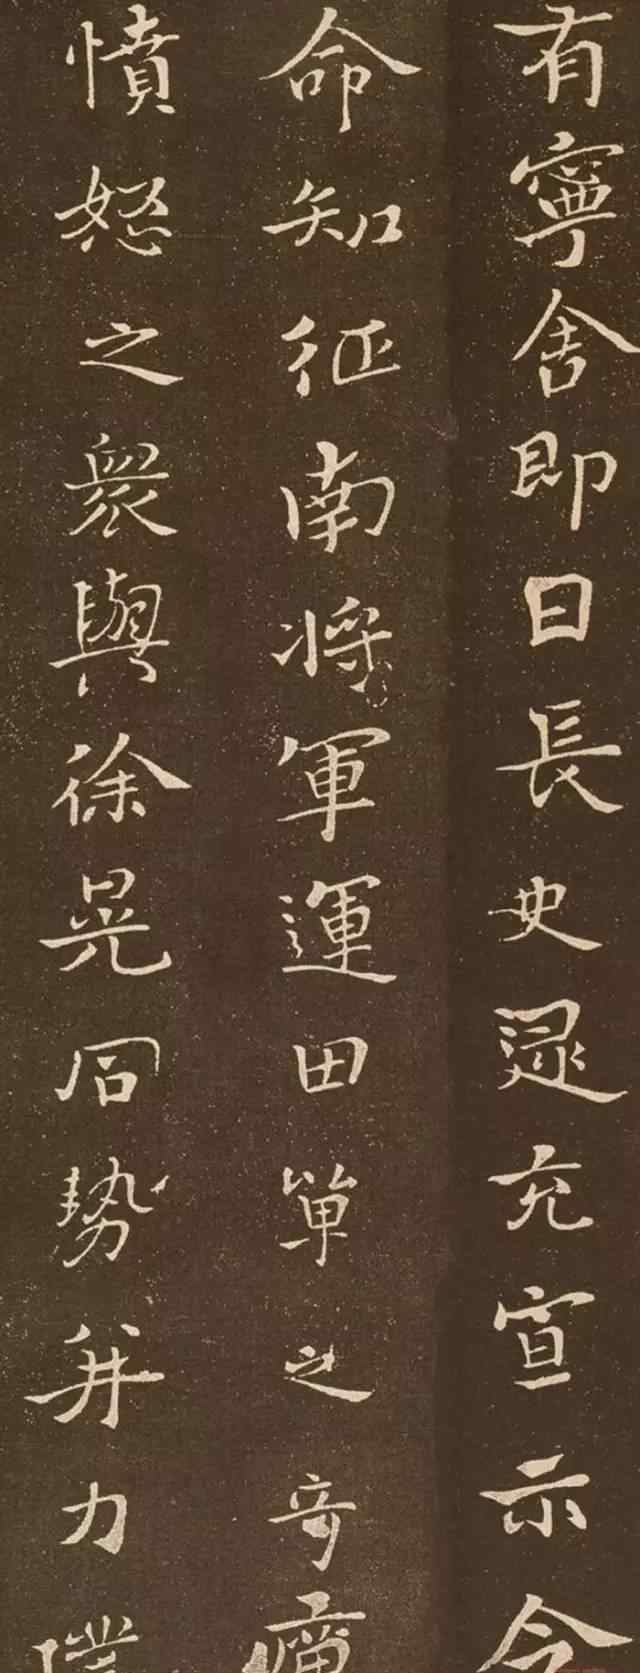 有寧舍即日長史逯充宣示
命知征南將軍運田單之奇
憤怒之衆與徐晃同勢并力